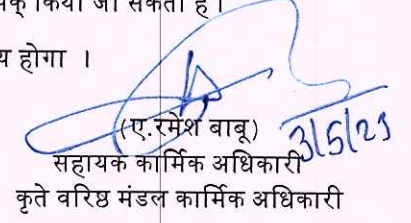 किया जा सकता है।
य होगा ।
(ए.रमेश बाबू)
3/5/23
सहायक कार्मिक अधिकारी
कृते वरिष्ठ मंडल कार्मिक अधिकारी